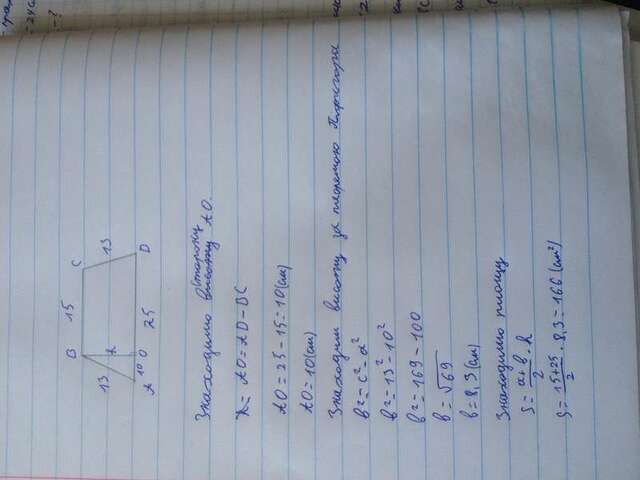 B 15 C
13 h 13
A 10 O 25 D
Знаходимо сторону
висоту AO.
X = AO = AD - BC
AO = 25 - 15 = 10 (см)
AO = 10 (см)
Знаходим висоту за теоремою Піфагора
b² = c² - a²
b² = 13² - 10²
b² = 169 - 100
b = √69
b = 8,3 (см)
Знаходимо площу
S = a+b/2 · h
S = 15+25/2 · 8,3 = 166 (см²)